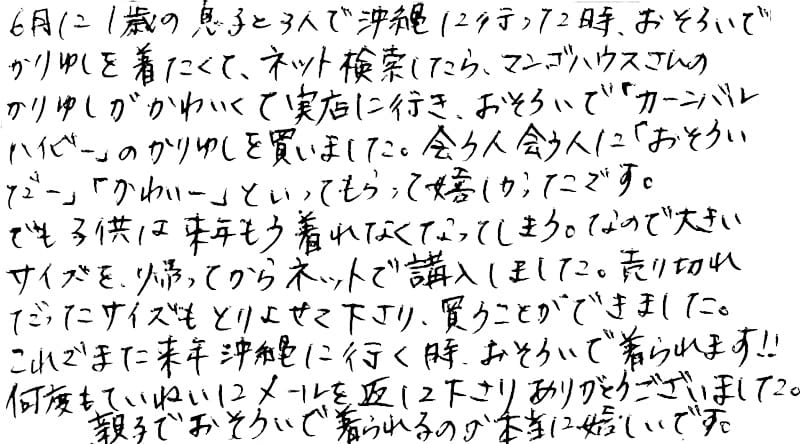 6月に1歳の息子と3人で沖縄に行った時、おそろいで
かりゆしを着たくて、ネット検索したら、マンゴハウスさんの
かりゆしがかわいくて実店に行き、おそろいで「カーニバル
ハイビー」のかりゆしを買いました。会う人会う人に「おそろい
だー」「かわいー」といってもらって嬉しかったです。
でも子供は来年もう着れなくなってしまう。なので大きい
サイズを、帰ってからネットで講入しました。売り切れ
だったサイズもとりよせて下さり、買うことができました。
これでまた来年沖縄に行く時、おそろいで着られます!!
何度もていねいにメールを返して下さりありがとうございました。
親子でおそろいで着られるのが本当に嬉しいです。